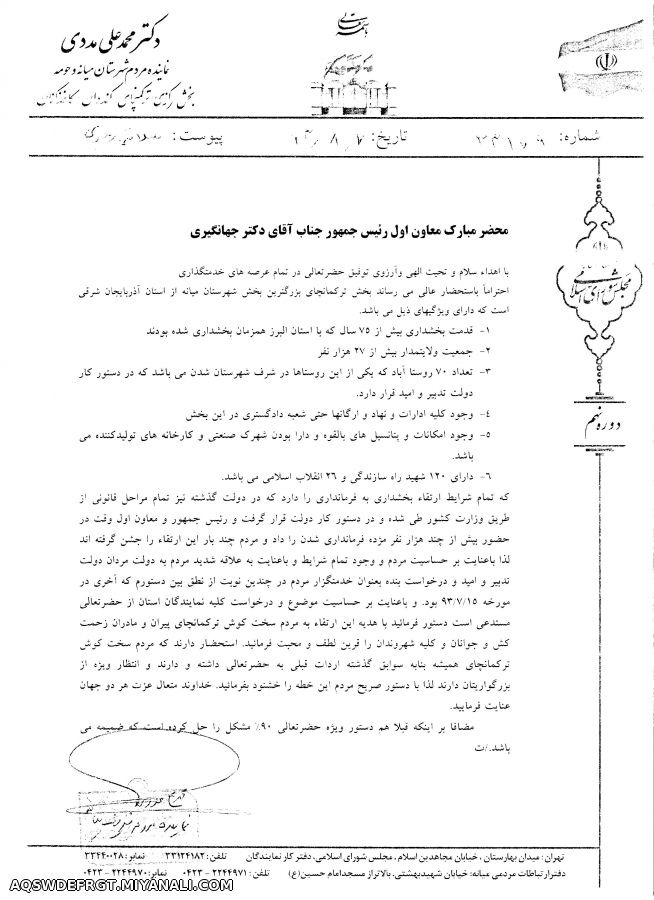 دکتر محمدعلی مددی
نماینده مردم شهرستان میانه و حومه
بخش مرکزی، ترکمنچای، کندوان، کاغذکنان
شماره:
تاریخ:
پیوست:
محضر مبارک معاون اول رئیس جمهور جناب آقای دکتر جهانگیری
مجلس شورای اسلامی
دوره نهم
با اهداء سلام و تحیت الهی وآرزوی توفیق حضرتعالی در تمام عرصه های خدمتگذاری
احتراماً باستحضار عالی می رساند بخش ترکمانچای بزرگترین بخش شهرستان میانه از استان آذربایجان شرقی
است که دارای ویژگیهای ذیل می باشد.
۱- قدمت بخشداری بیش از ۷۵ سال که با استان البرز همزمان بخشداری شده بودند
۲- جمعیت ولایتمدار بیش از ۲۷ هزار نفر
۳- تعداد ۷۰ روستا آباد که یکی از این روستاها در شرف شهرستان شدن می باشد که در دستور کار
دولت تدبیر و امید قرار دارد.
۴- وجود کلیه ادارات و نهاد و ارگانها حتی شعبه دادگستری در این بخش
۵- وجود امکانات و پتانسیل های بالقوه و دارا بودن شهرک صنعتی و کارخانه های تولیدکننده می
باشد.
۶- دارای ۱۲۰ شهید راه سازندگی و ۲۶ انقلاب اسلامی می باشد.
که تمام شرایط ارتقاء بخشداری به فرمانداری را دارد که در دولت گذشته نیز تمام مراحل قانونی از
طریق وزارت کشور طی شده و در دستور کار دولت قرار گرفت و رئیس جمهور و معاون اول وقت در
حضور بیش از چند هزار نفر مژده فرمانداری شدن را داد و مردم چند بار این ارتقاء را جشن گرفته اند
لذا باعنایت بر حساسیت مردم و وجود تمام شرایط و باعنایت به علاقه شدید مردم به دولت مردان دولت
تدبیر و امید و درخواست بنده بعنوان خدمتگزار مردم در چندین نوبت از نطق بین دستورم که آخری در
مورخه ۹۳/۷/۱۵ بود. و باعنایت بر حساسیت موضوع و درخواست کلیه نمایندگان استان از حضرتعالی
مستدعی است دستور فرمائید با هدیه این ارتقاء به مردم سخت کوش ترکمانچای پیران و مادران زحمت
کش و جوانان و کلیه شهروندان را قرین لطف و محبت فرمائید. استحضار دارند که مردم سخت کوش
ترکمانچای همیشه بنابه سوابق گذشته اردات قبلی به حضرتعالی داشته و دارند و انتظار ویژه از
بزرگواریتان دارند لذا با دستور صریح مردم این خطه را خشنود بفرمائید. خداوند متعال عزت هر دو جهان
عنایت فرمایید.
مضافا بر اینکه قبلا هم دستور ویژه حضرتعالی ۹۰٪ مشکل را حل کرده است که ضمیمه می
باشد./ت
تهران: میدان بهارستان، خیابان مجاهدین اسلام، مجلس شورای اسلامی، دفتر کار نمایندگان تلفن: ۳۳۱۲۴۱۸۲ نمابر: ۳۳۴۴۰۰۲۸
دفتر ارتباطات مردمی میانه: خیابان شهیدبهشتی، بالاتراز مسجدامام حسین(ع) تلفن: ۲۲۴۴۹۷۱ - ۰۴۲۳ نمابر: ۲۲۴۴۹۷۰ - ۰۴۲۳
AQSWDEFRGT.MIYANALI.COM